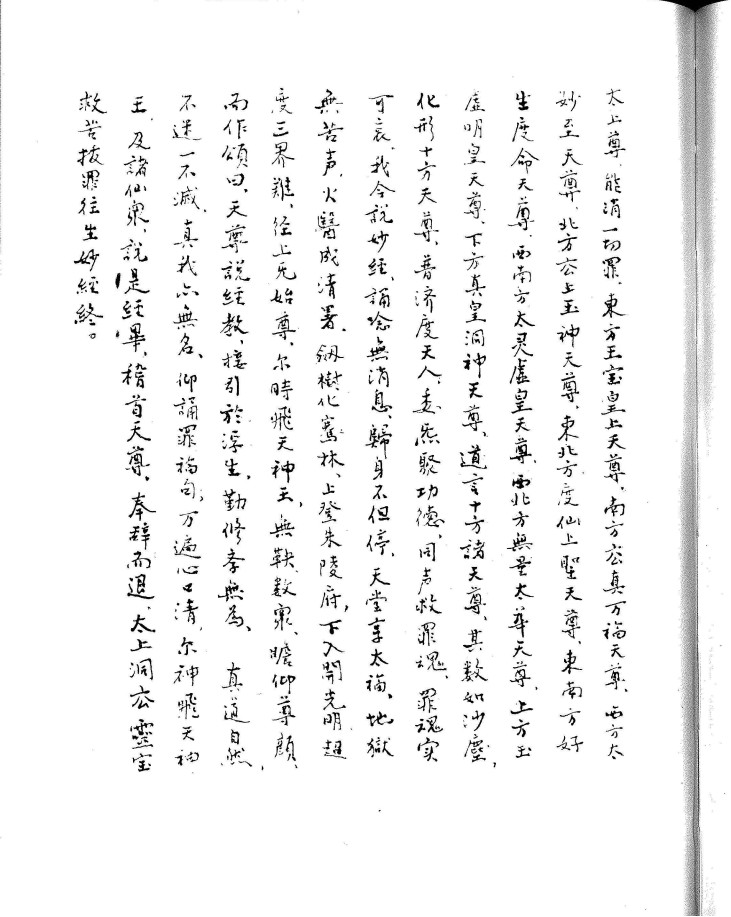 太上尊、能消一切罪、東方玉宝皇上天尊、南方玄真万福天尊、西方太
妙至天尊、北方玄上玉神天尊、東北方度仙上聖天尊、東南方好
生度命天尊、西南方太灵虚皇天尊、西北方無量太華天尊、上方玉
虚明皇天尊、下方真皇洞神天尊、道言十方諸天尊、其数如沙塵、
化形十方天尊、普济度天人、委炁聚功德、同声救罪魂、罪魂实
可哀、我今説妙経、誦念無消息、歸身不但停、天堂享太福、地獄
無苦声、火醫成清署、劔樹化騫林、上登朱陵府、下入開光明超
度三界難、径上旡始尊、尔時飛天神王、無鞅数衆、瞻仰尊顔、
而作頌曰、天尊説経教、接引於浮生、勤修孝無為、真道自然、
不迷一不滅、真我亦無名、仰誦罪福句、万遍心口清、尔神飛天神
王、及諸仙衆、説是経畢、稽首天尊、奉辞而退、太上洞玄靈宝
救苦拔罪往生妙經終。